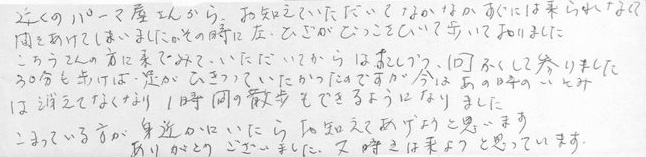 近くのパーマ屋さんから、お知えていただいてなかなかすぐには来られなくて
間をあけてしまいましたがその時に左ひざがびっこをひいて歩いておりました
こちらさんの方に来てみて、いただいてからは 回 くして参りました
30分も歩けば足がひきつっていたかったのですが今はあの時のいたみ
は消えてなくなり1時間の散歩もできるようになりました
こまっている方が身近かにいたらお知えてあげようと思います
ありがとうございました。又時々は来ようと思っています。